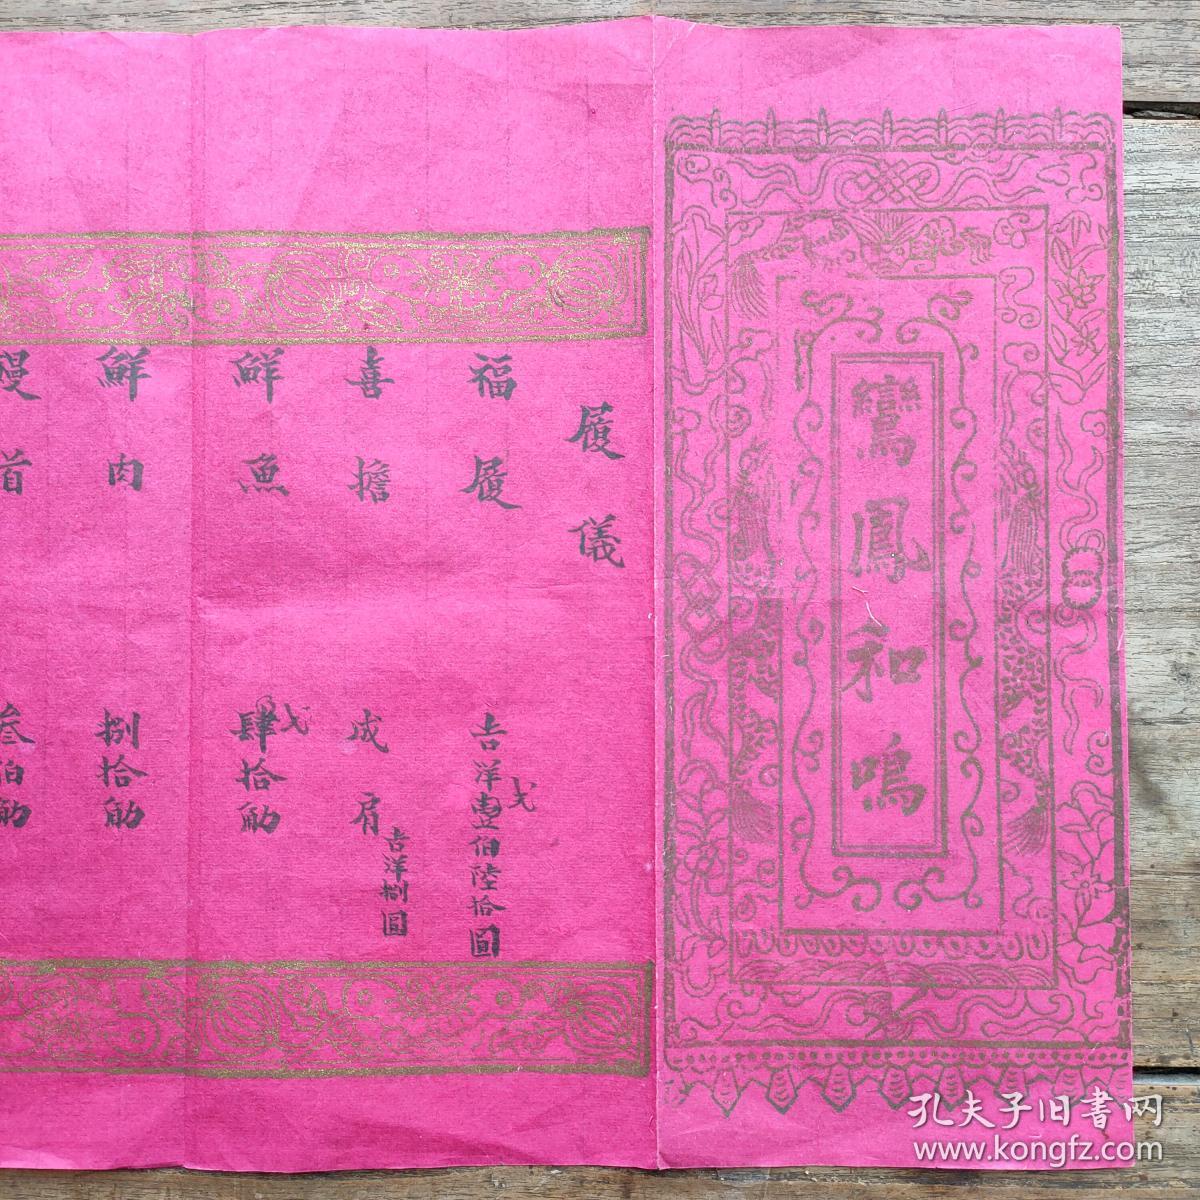 鸞鳳和鳴
履儀
福履 吉洋壹伯陸拾圓
弍
喜擔 成肩
吉洋捌圓
鮮魚 肆拾觔
弍
鮮肉 捌拾觔
饅首 叁伯觔
孔夫子旧书网
www.kongfz.com